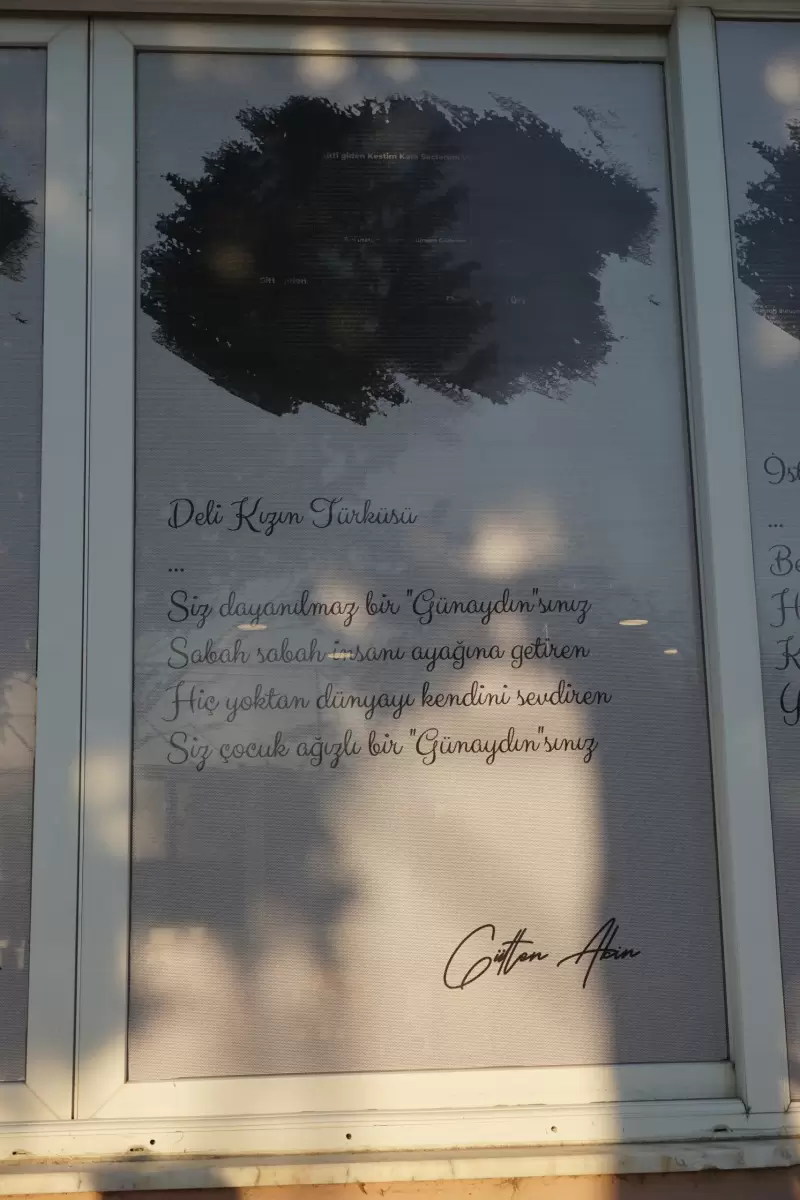 giden Kestim Kara Saçlarımı
Deli Kızın Türküsü
...
Siz dayanılmaz bir "Günaydın"sınız
Sabah sabah insanı ayağına getiren
Hiç yoktan dünyayı kendini sevdiren
Siz çocuk ağızlı bir "Günaydın"sınız
Gülten Akın
İst
...
Be
H
K
Y